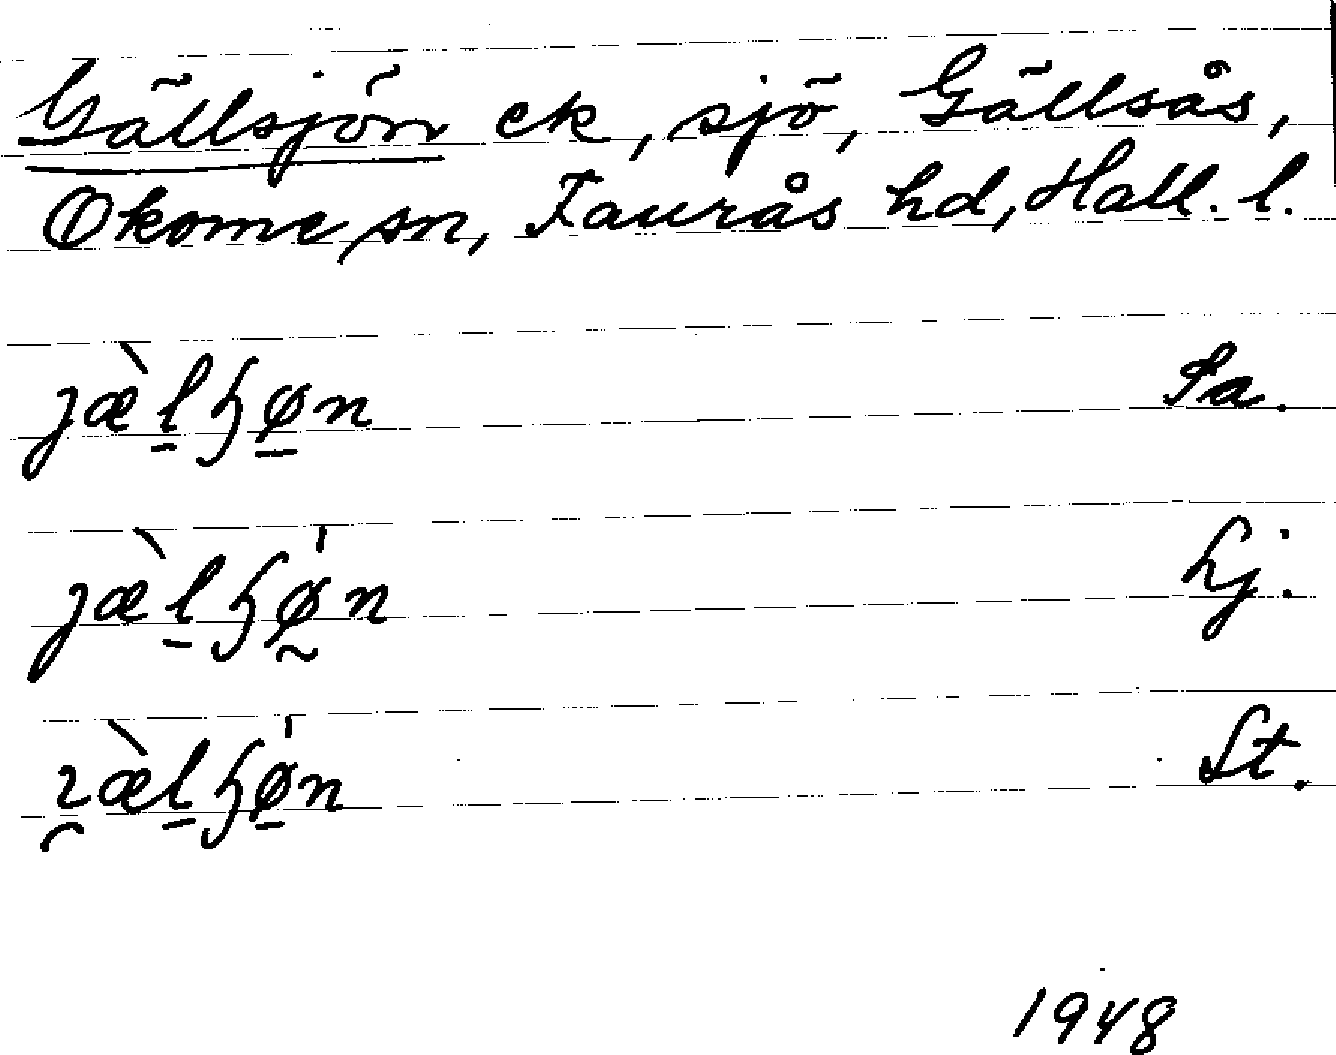 Gällsjön ek, sjö, Gällsås,
Okome sn, Faurås hd, Hall. l.
jæ̀lɧøn Sa.
jæ̀lɧø̍n Lj.
ɿæ̀lɧø̍n St.
1948